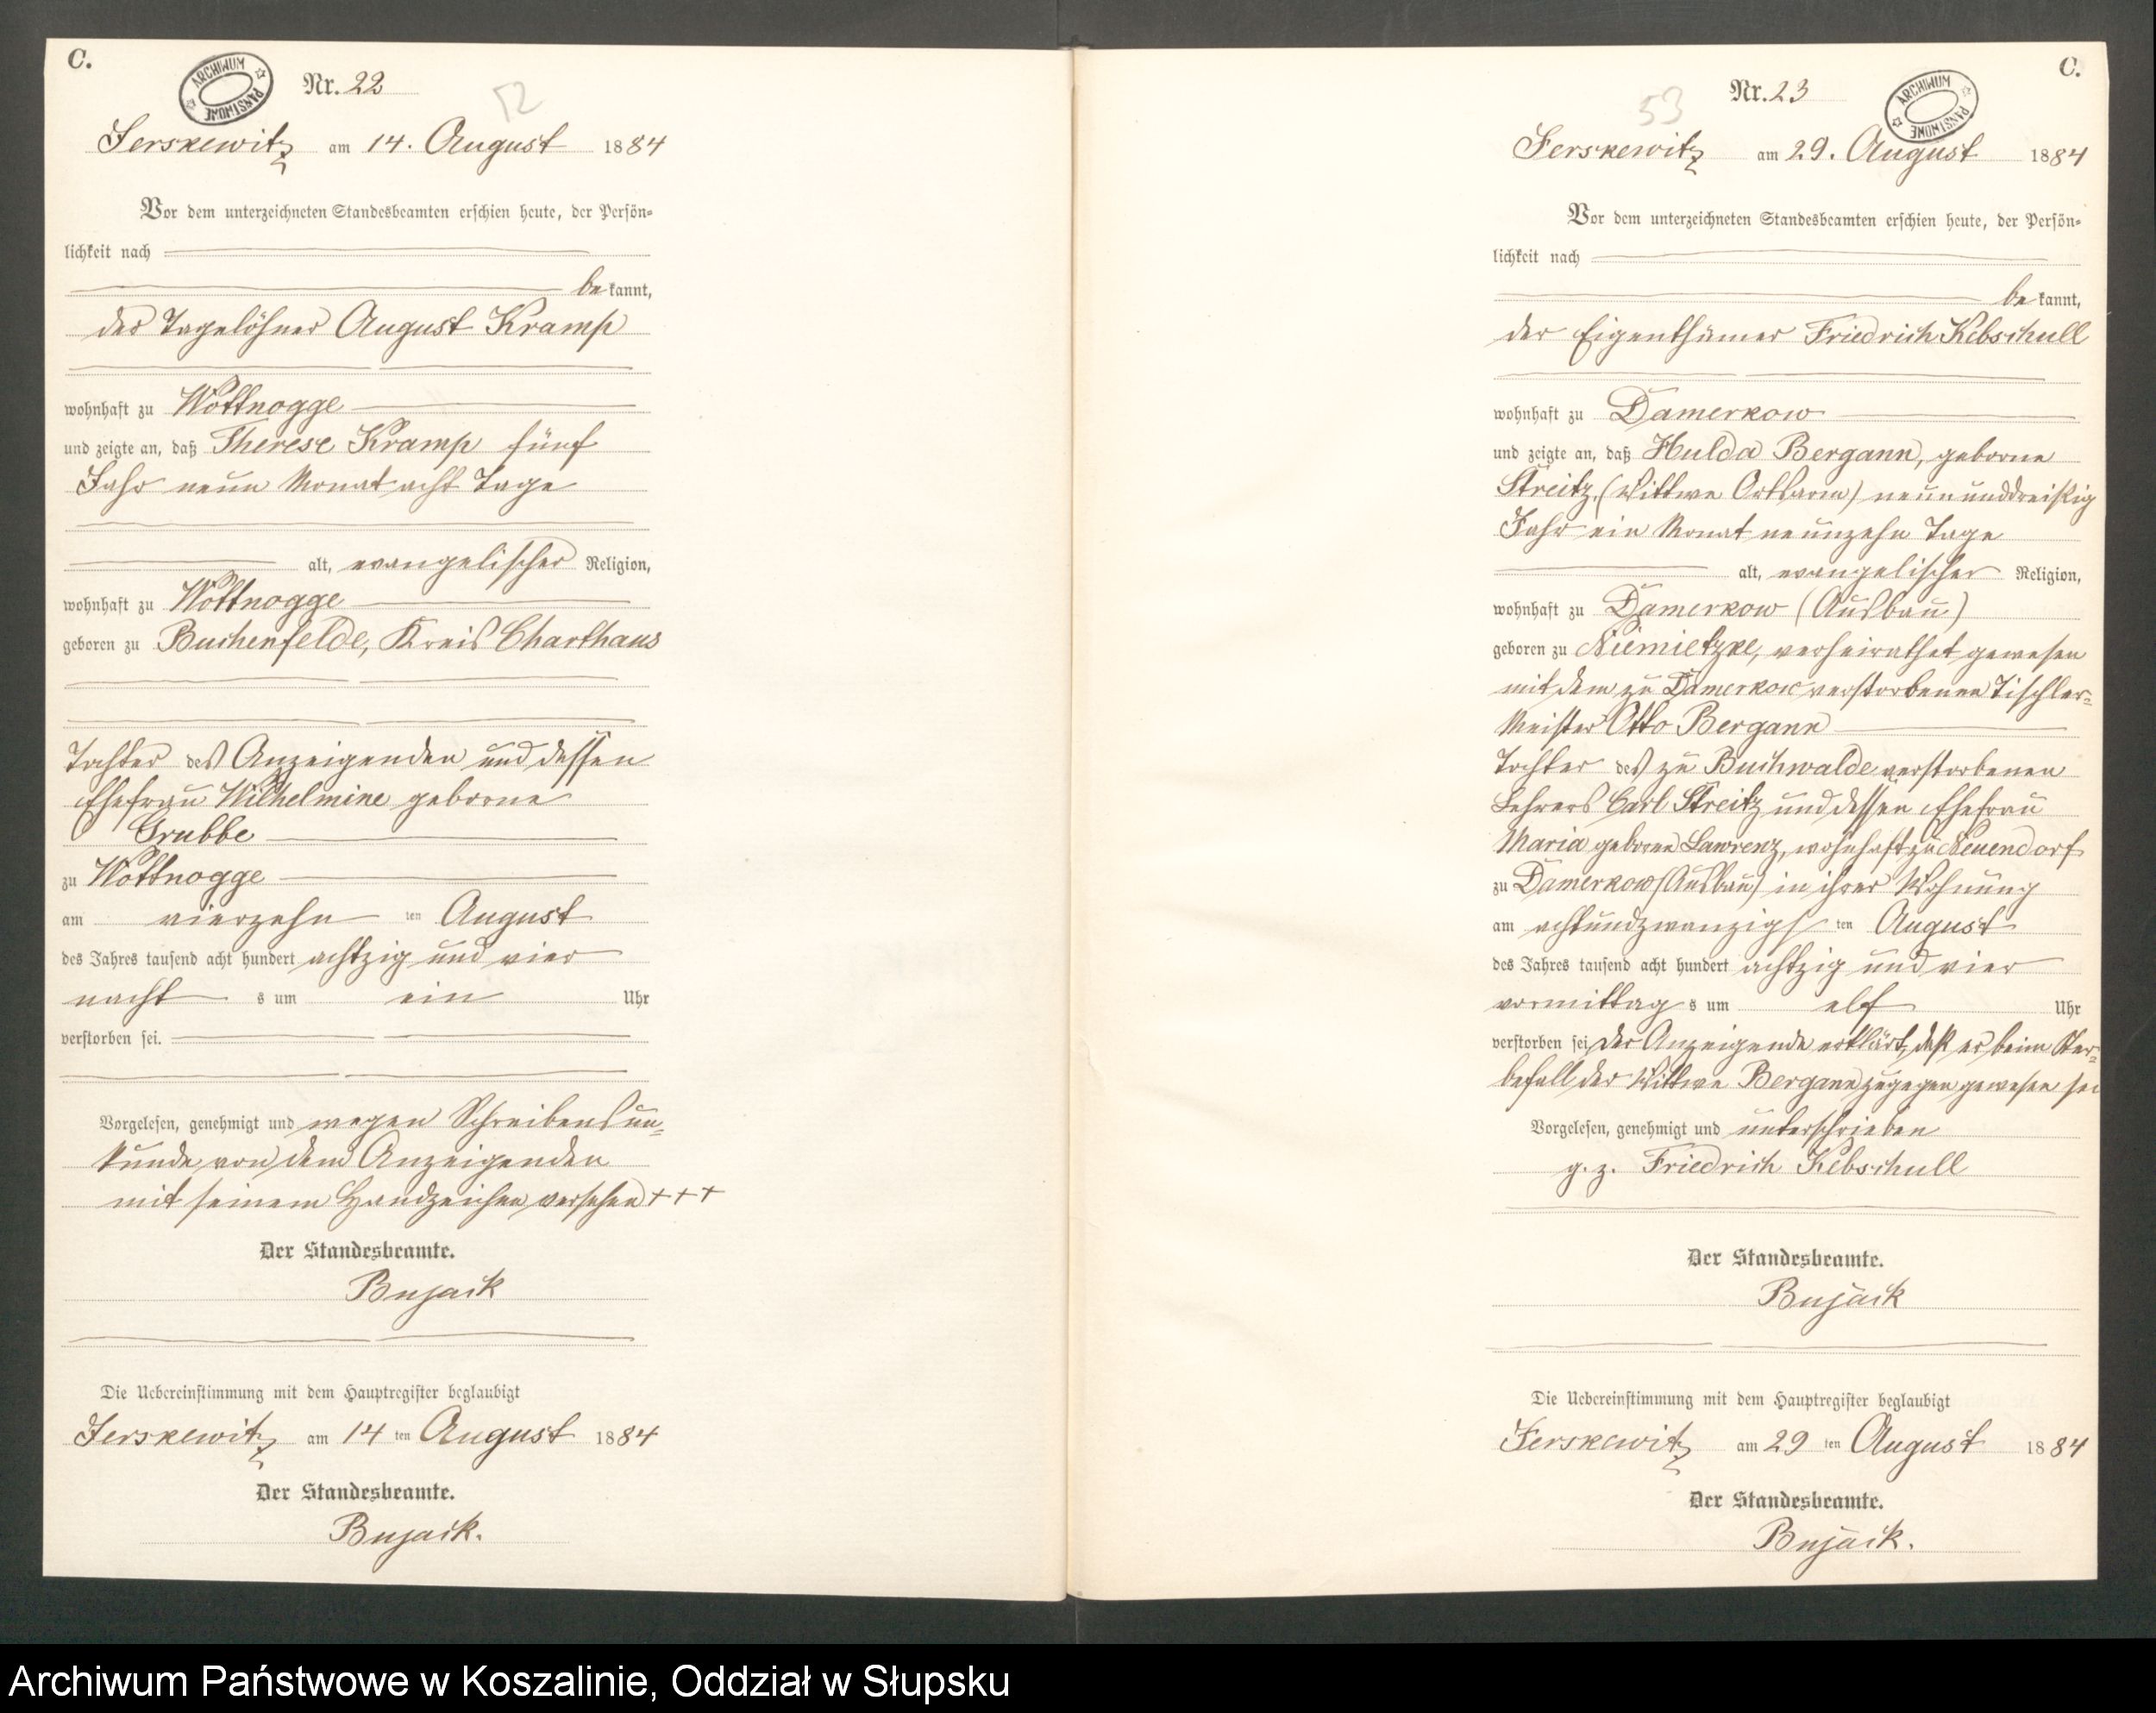 C.
ARCHIWUM PAŃSTWOWE
Nr. 22
52
Jerskewitz am 14. August 1884
Vor dem unterzeichneten Standesbeamten erschien heute, der Persön=
lichkeit nach
be kannt,
der Tagelöhner August Kramp
wohnhaft zu Wottnogge
und zeigte an, daß Therese Kramp fünf
Jahr neun Monat acht Tage
alt, evangelischer Religion,
wohnhaft zu Wottnogge
geboren zu Buchenfelde, Kreis Charthaus
Tochter des Anzeigenden und dessen
Ehefrau Wilhelmine geborne
Grubbe
zu Wottnogge
am vierzehn ten August
des Jahres tausend acht hundert achtzig und vier
nacht s um ein Uhr
verstorben sei.
Vorgelesen, genehmigt und wegen Schreibensun=
kunde von dem Anzeigenden
mit seinem Handzeichen versehen +++
Der Standesbeamte.
Bujack
Die Uebereinstimmung mit dem Hauptregister beglaubigt
Jerskewitz am 14 ten August 1884
Der Standesbeamte.
Bujack.
C.
ARCHIWUM PAŃSTWOWE
Nr. 23
53
Jerskewitz am 29. August 1884
Vor dem unterzeichneten Standesbeamten erschien heute, der Persön=
lichkeit nach
be kannt,
der Eigenthümer Friedrich Kebschull
wohnhaft zu Damerkow
und zeigte an, daß Hulda Bergann, geborne
Streitz, (Wittwe Ortsarm) neununddreißig
Jahr ein Monat neunzehn Tage
alt, evangelischer Religion,
wohnhaft zu Damerkow (Ausbau)
geboren zu Niemietzke, verheirathet gewesen
mit dem zu Damerkow verstorbenen Tischler=
Meister Otto Bergann
Tochter des zu Buchwalde verstorbenen
Lehrers Carl Streitz und dessen Ehefrau
Maria geborne Lawrenz, wohnhaft zu Neuendorf
zu Damerkow (Ausbau) in ihrer Wohnung
am achtundzwanzigs ten August
des Jahres tausend acht hundert achtzig und vier
vormittag s um elf Uhr
verstorben sei, der Anzeigende erklärt, daß er beim Ster=
befall der Wittwe Bergann zugegen gewesen sei
Vorgelesen, genehmigt und unterschrieben
g. z. Friedrich Kebschull
Der Standesbeamte.
Bujack
Die Uebereinstimmung mit dem Hauptregister beglaubigt
Jerskewitz am 29 ten August 1884
Der Standesbeamte.
Bujack.
Archiwum Państwowe w Koszalinie, Oddział w Słupsku